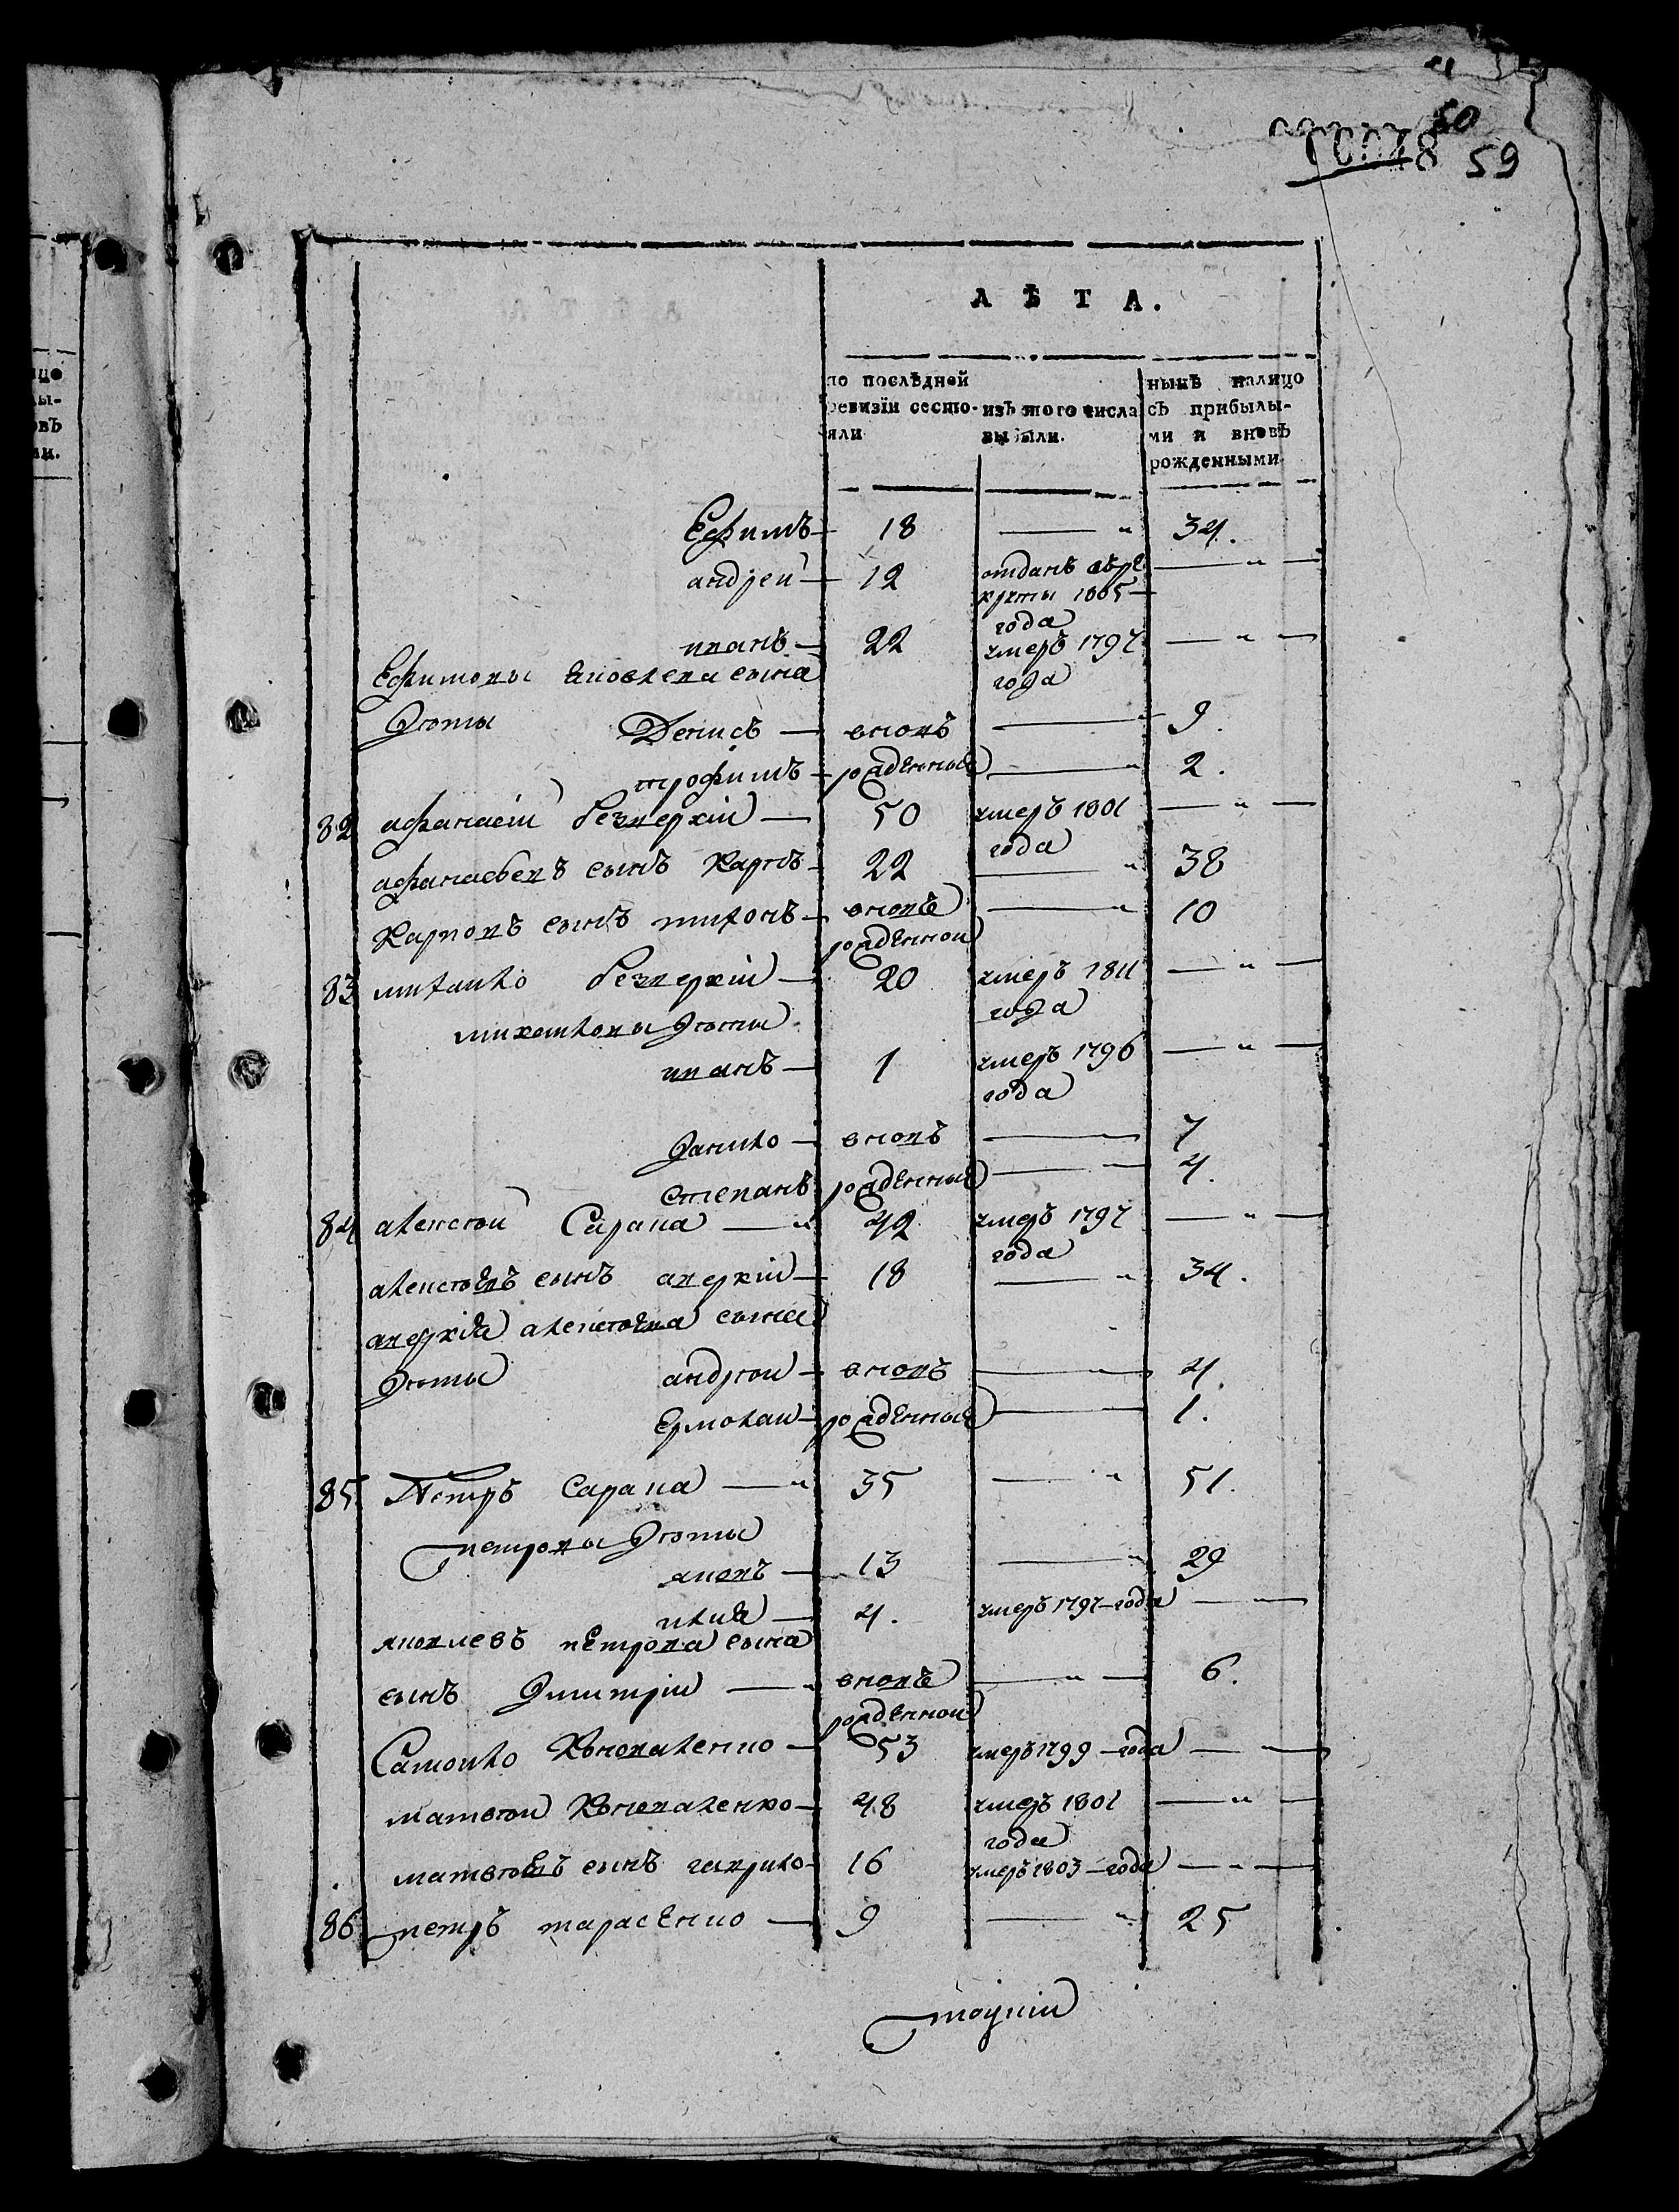 50
59
ЛѢТА.
по послѣдней ревизіи состояли
изъ того числа выбыли.
нынѣ налицо съ прибылыми и вновь рожденными
Ефимъ — 18 — " 34.
андрей — 12 отданъ въ рекруты 1805 года — " —
иванъ — 22 умеръ 1797 года — " —
Ефимовы сына
дѣти Денисъ — вновь — 9.
трофимъ — рожденные — " 2.
82 афанасій безверхій — 50 умеръ 1801 года — " —
афанасьевъ сынъ Карпъ — 22 — " 38
Карповъ сынъ тихонъ — вновь рожденной — " 10
83 михайло безверхій — 20 умеръ 1811 года — " —
михайловы дѣти
иванъ — 1 умеръ 1796 года — " —
данило — вновь — 7
степанъ рожденные — " 4.
84 алексѣй Сирапа — " 42 умеръ 1797 года — " —
алексѣевъ сынъ аверкій — 18 — " 34.
аверкія алексѣева сына
дѣти андрѣй — вновь — " 4.
Ермолай — рожденные — 1.
85 Петръ Сарапа — " 35 — " 51.
петровы дѣти
яковъ — 13 — " 29
илия — 4. умеръ 1797 года — —
яковлевъ петрова сына
сынъ димитрій — " вновь рожденной — " — 6.
Самойло Коноваленко — 53 умеръ 1799 — года — —
матвѣй Коноваленко — 48 умеръ 1801 года — " —
матвѣевъ сынъ гаврило — 16 умеръ 1803 — года — " —
86 петръ тарасенко — 9 — " 25